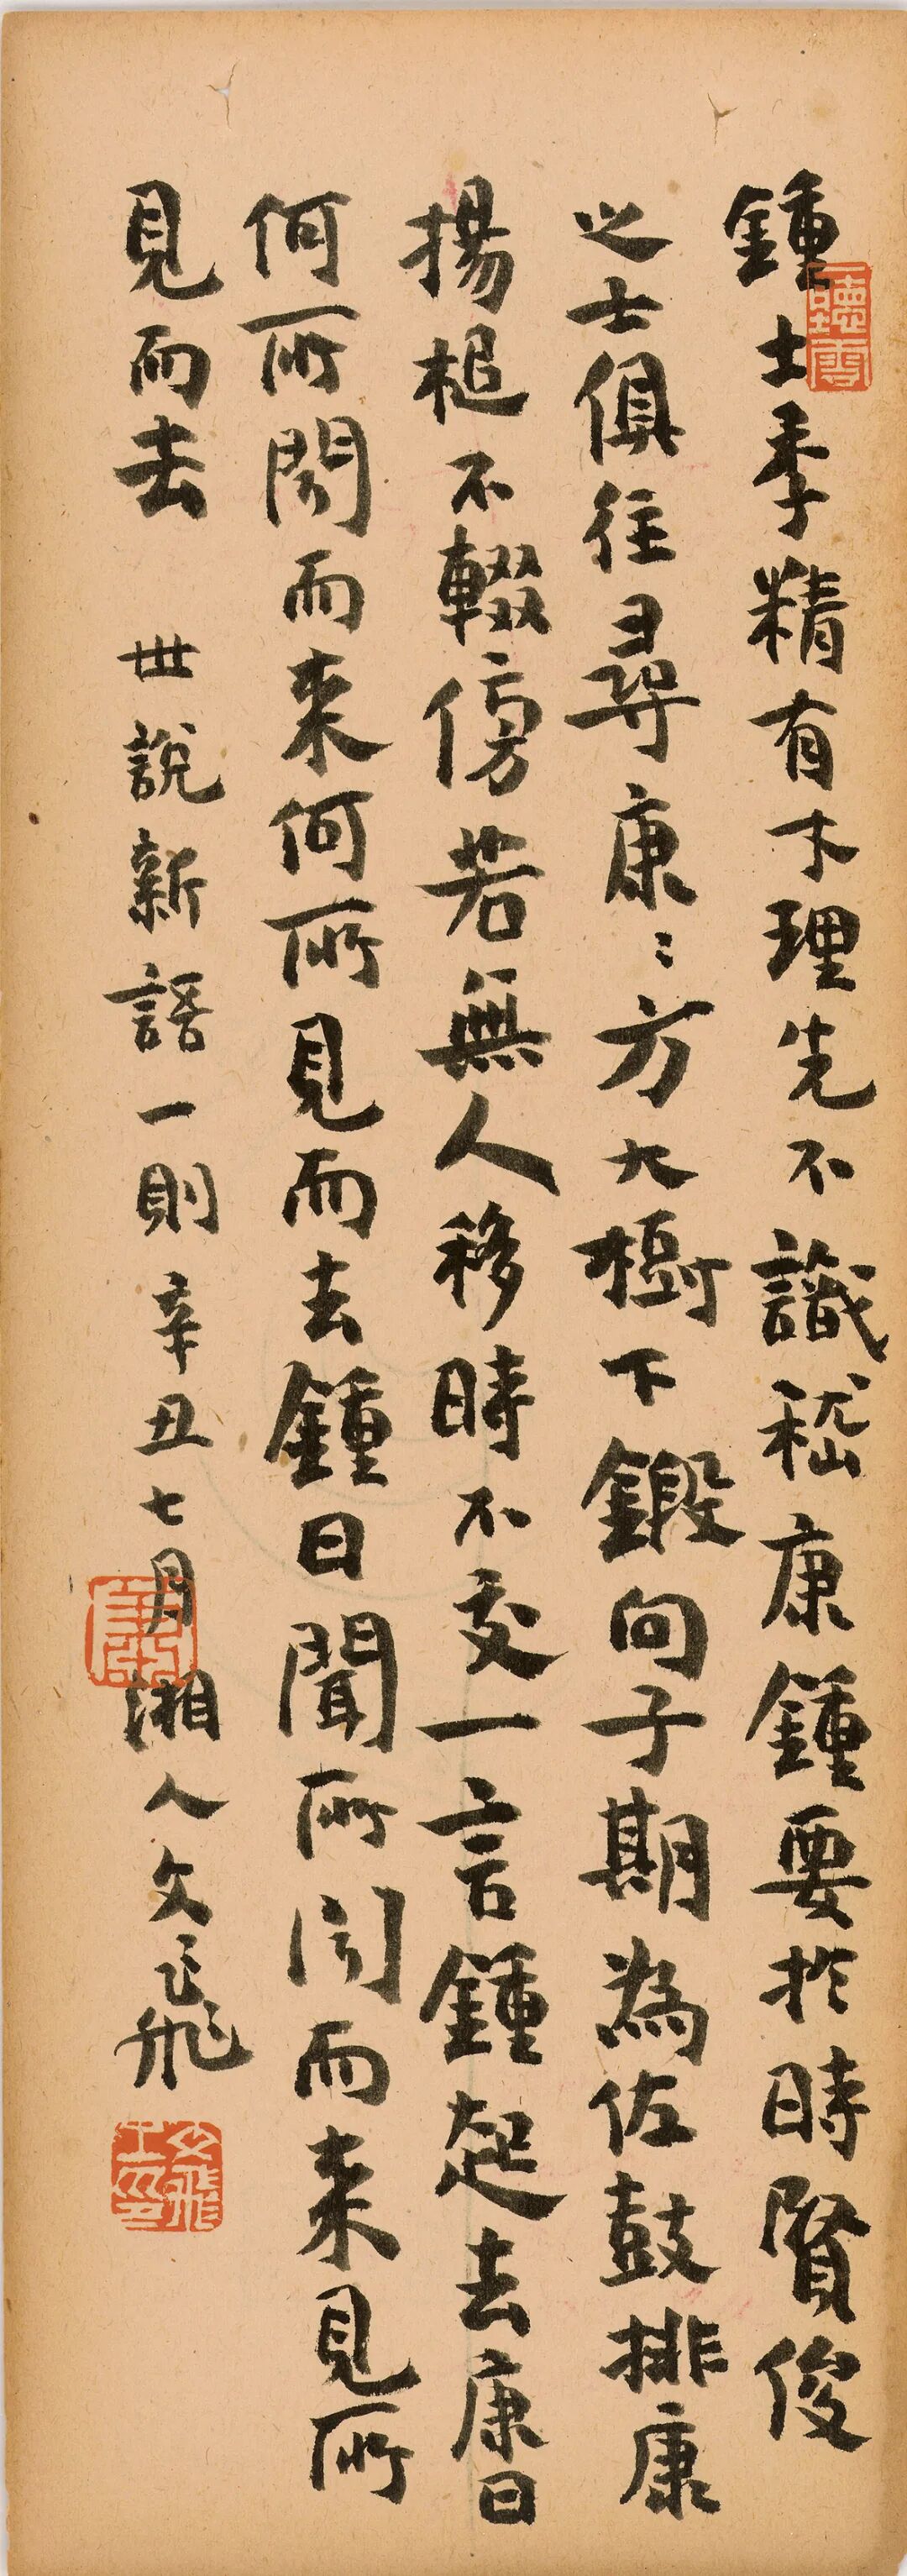 鍾士季精有才理先不識嵇康鍾要於時賢俊
之士俱往尋康〻方大樹下鍛向子期為佐鼓排康
揚槌不輟傍若無人移時不交一言鍾起去康曰
何所聞而来何所見而去鍾曰聞所聞而来見所
見而去 世說新語一則 辛丑七月湘人文飛
聽雪